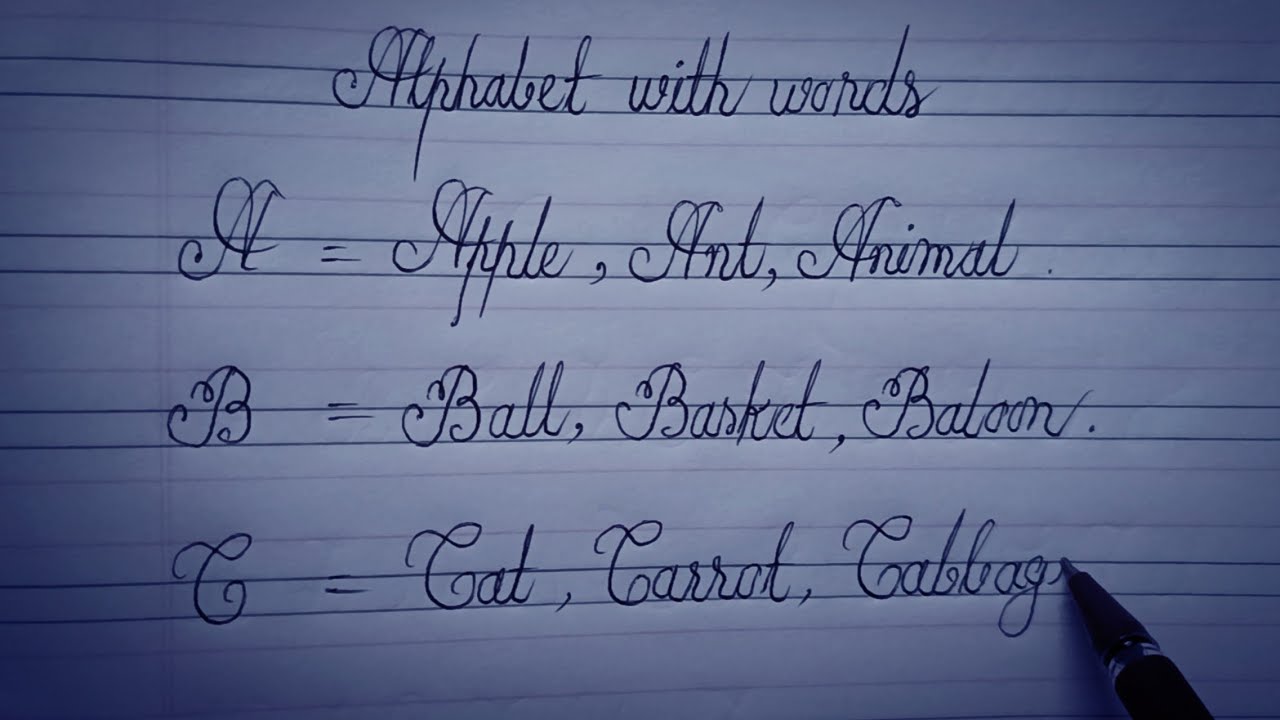 Alphabet with words
A = Apple, Ant, Animal.
B = Ball, Basket, Baloon.
C = Cat, Carrot, Cabbag